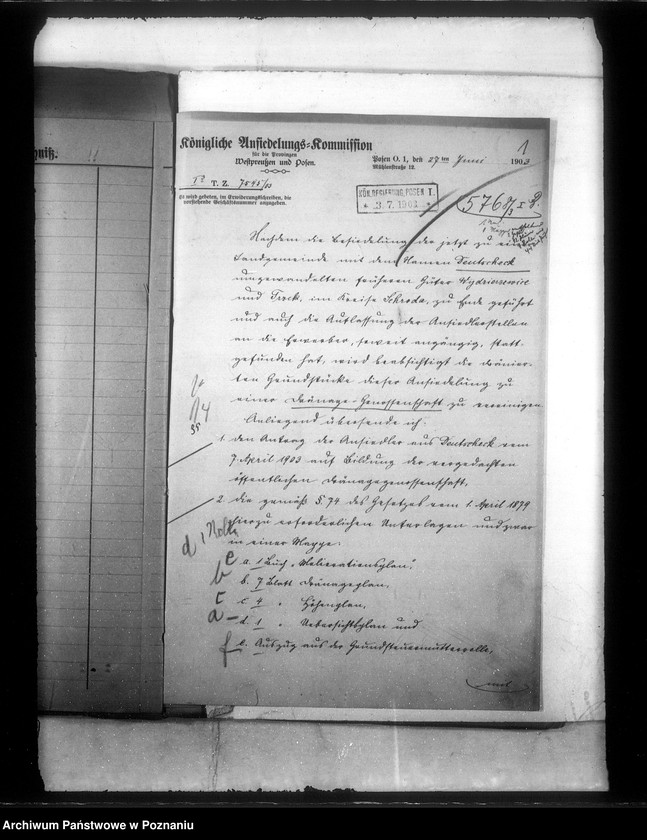 Königliche Ansiedelungs-Kommission
für die Provinzen
Westpreußen und Posen.
Posen O. 1, den 27ten Juni 1903
Mühlenstraße 12.
1
T. Z. 7545/03
Es wird gebeten, im Erwiderungsschreiben, die
vorstehende Geschäftsnummer anzugeben.
KÖN. REGIERUNG POSEN I.
3. 7. 1903
5768/3
Nachdem die Besiedelung der jetzt zu einer
Landgemeinde mit dem Namen Deutscheck
umgewandelten früheren Güter
und Treck, im Kreise Schroda, zu Ende geführt
und auch die Auflassung der Ansiedlerstellen
an die Erwerber, soweit angängig, statt-
gefunden hat, wird beabsichtigt die drainir-
ten Grundstücke dieser Ansiedelung zu
einer Drainage-Genossenschaft zu vereinigen.
Anliegend übersende ich:
1. den Antrag der Ansiedler aus Deutscheck vom
7. April 1903 auf Bildung der vergedachten
öffentlichen Drainagegenossenschaft,
2. die gemäß § 74 des Gesetzes vom 1. April 1879
hierzu erforderlichen Unterlagen und zwar
in einer Mappe:
e a. 1 Buch „Meliorationsplan“,
b b. 7 Blatt Drainageplan,
c c. 4 " Höhenplan,
a d. 1 " Uebersichtsplan und
f e. Auszug aus der Grundsteuermutterrolle,
Archiwum Państwowe w Poznaniu